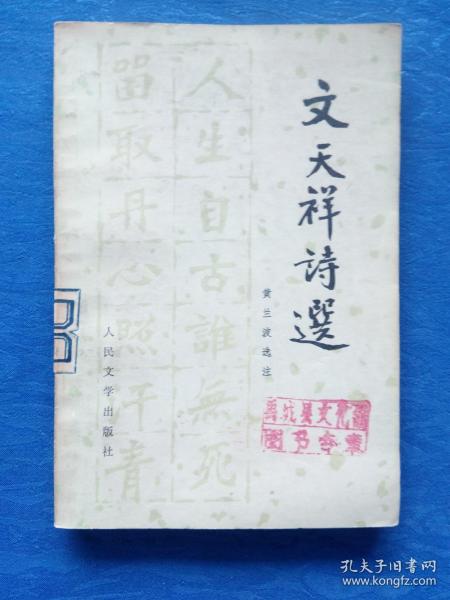 文天祥詩選
黄兰波选注
人生自古誰無死
留取丹心照汗青
人民文学出版社
孔夫子旧书网
www.kongfz.com